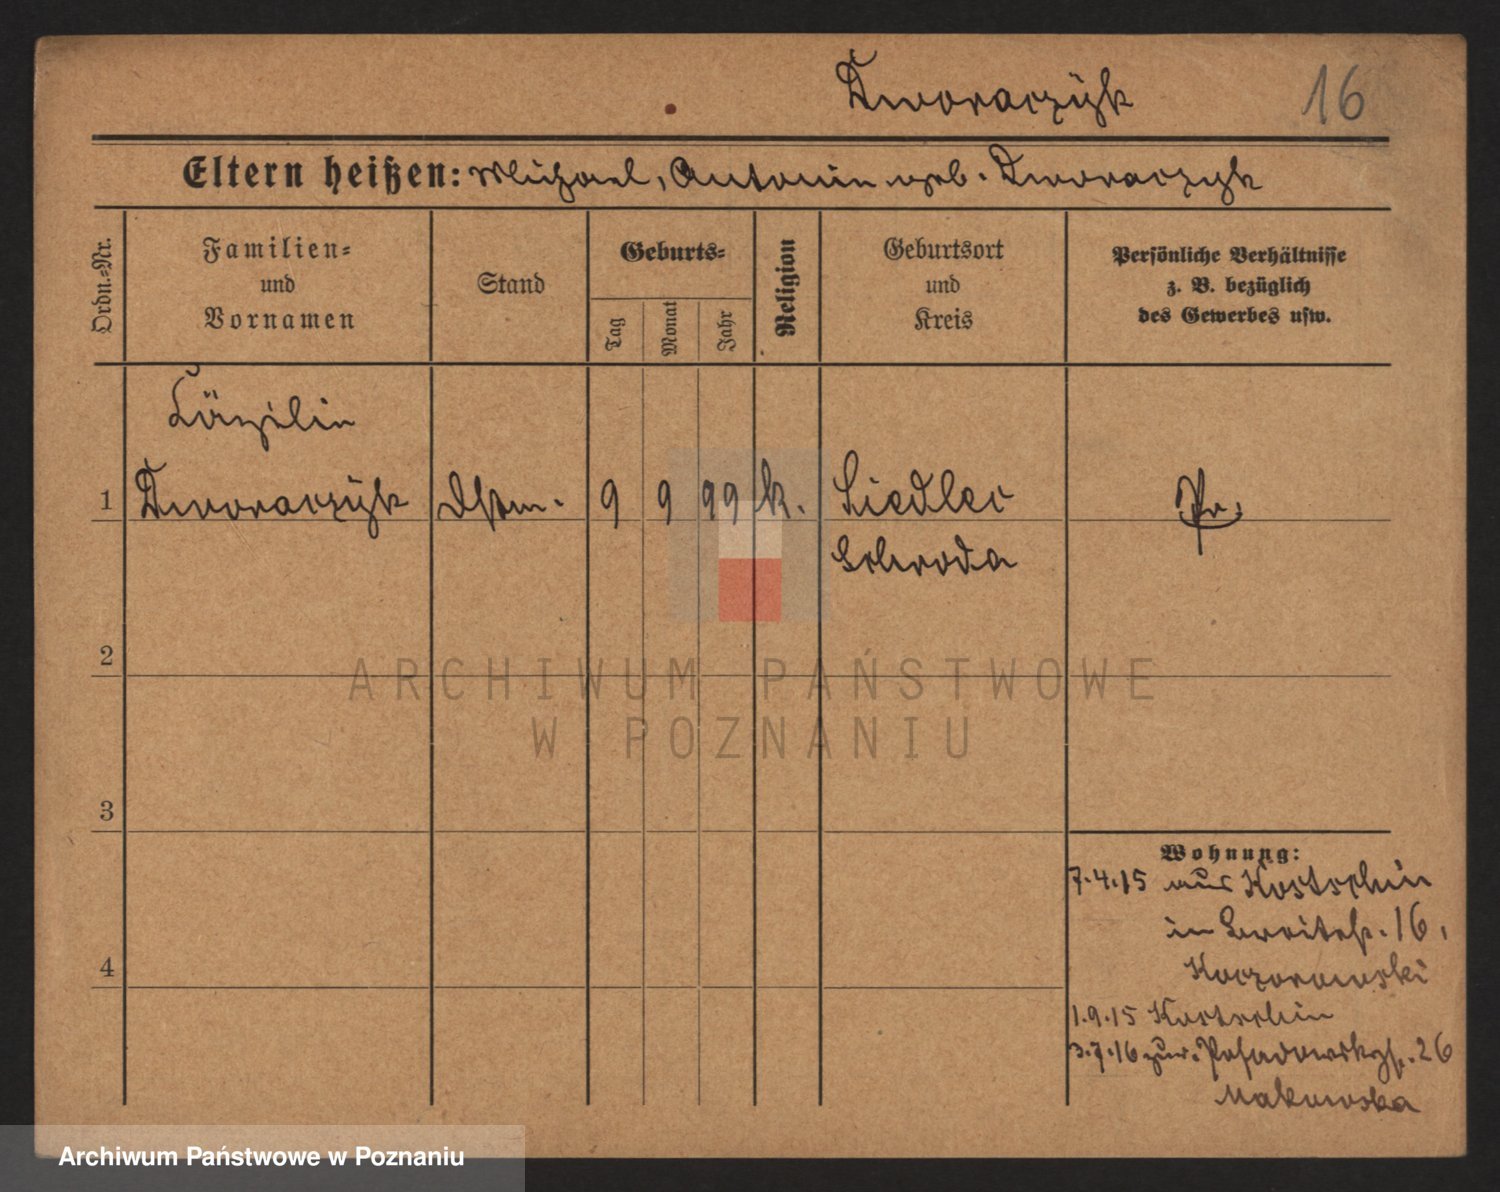 Dworaczyk 16
Eltern heißen: Michael, Antonin geb. Dworaczyk
Ordn.-Nr.
Familien-
und
Vornamen
Stand
Geburts-
Tag
Monat
Jahr
Religion
Geburtsort
und
Kreis
Persönliche Verhältnisse
z. B. bezüglich
des Gewerbes usw.
Cäzilie
1 Dworaczyk 9 9 99 k. Siedlec Pr.
Schroda
2
ARCHIWUM PAŃSTWOWE
W POZNANIU
3
Wohnung:
7.4.15 aus Kostschin
in Breitestr. 16,
Kaczorowski
4
1.9.15 Kostschin
3.7.16 zur. Posadowskystr. 26
Makowska
Archiwum Państwowe w Poznaniu